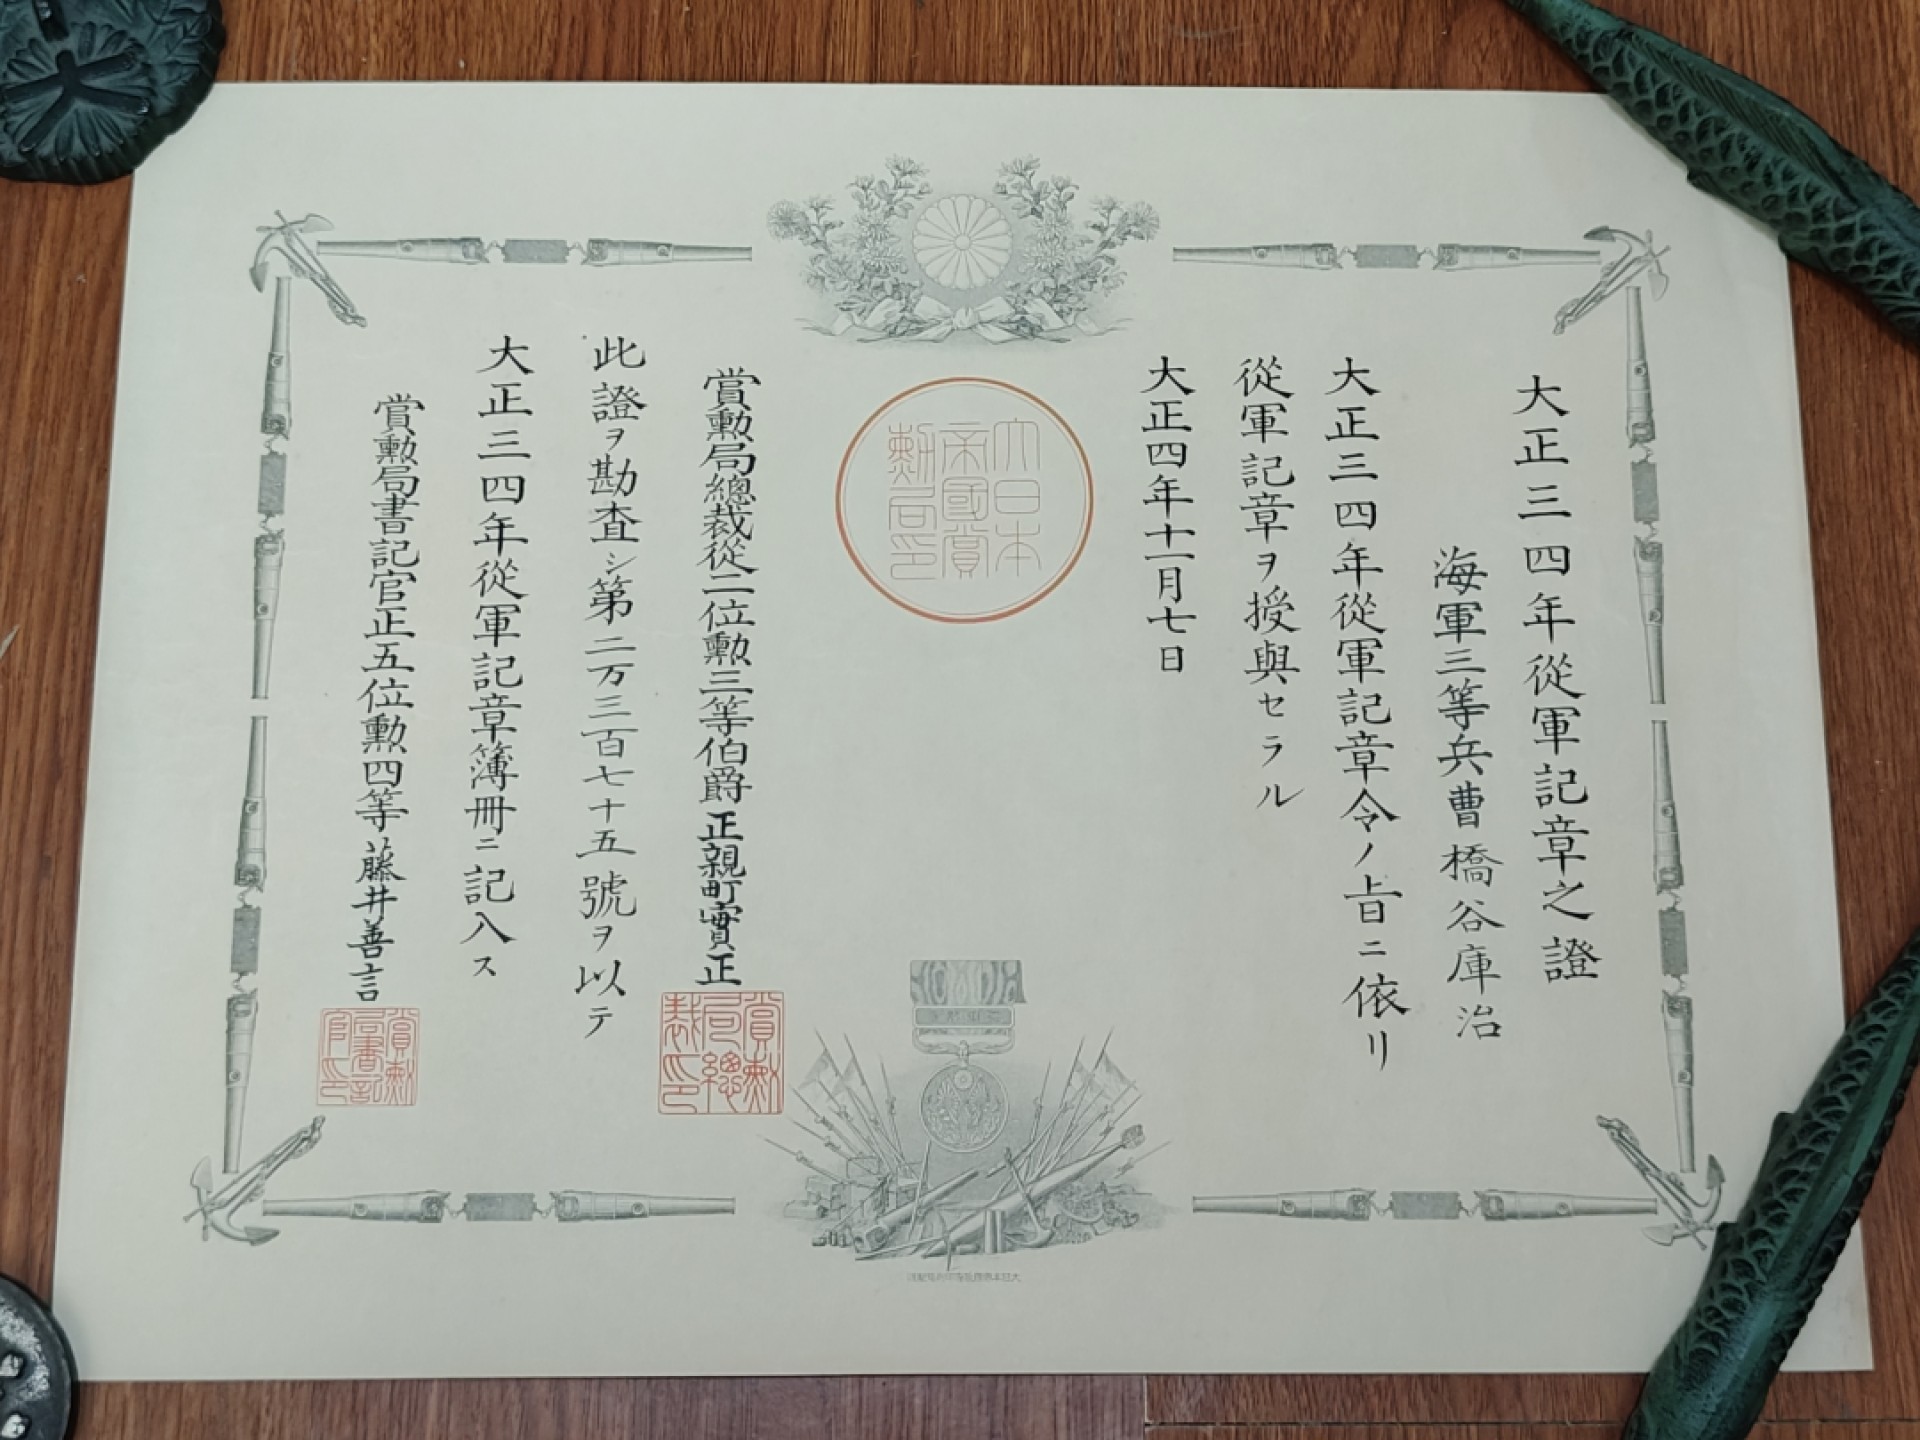 大正三四年從軍記章之證
海軍三等兵曹橋谷庫治
大正三四年從軍記章令ノ旨ニ依リ
從軍記章ヲ授與セラル
大正四年十一月七日
大日本
帝國賞
勲局印
賞勲局總裁從二位勲三等伯爵正親町實正
賞勲
局總
裁印
此證ヲ勘査シ第二万三百七十五號ヲ以テ
大正三四年從軍記章簿冊ニ記入ス
賞勲局書記官正五位勲四等藤井善言
賞勲
局書記
官印